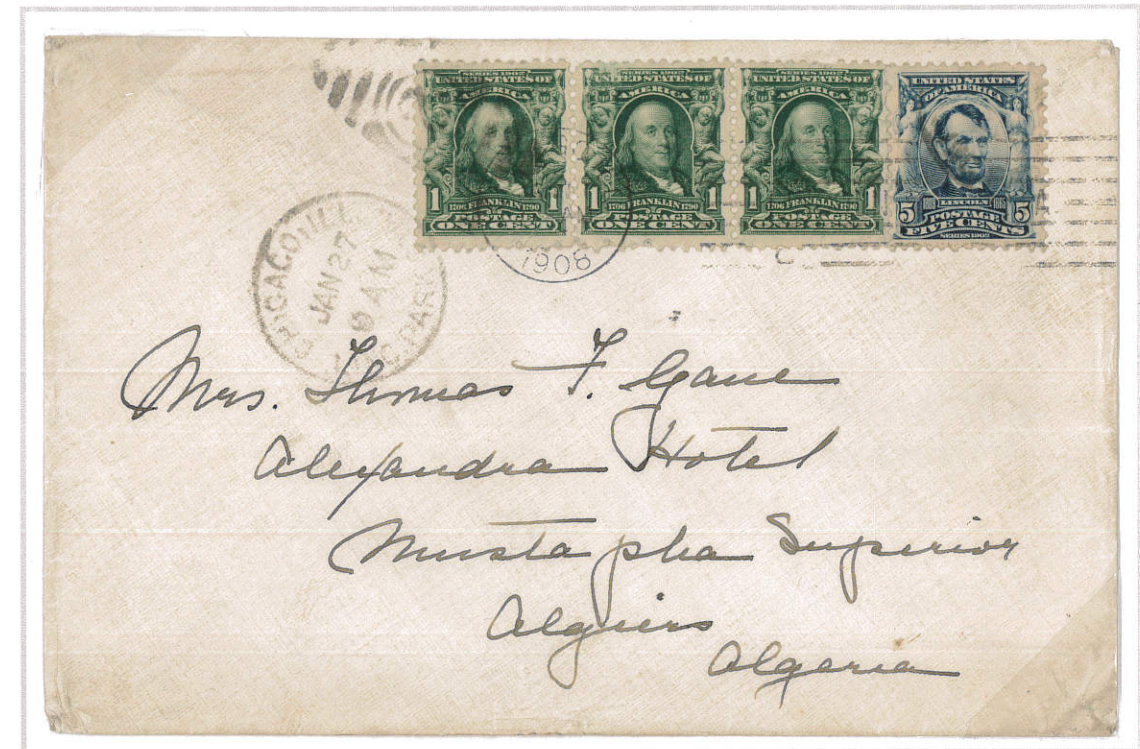 SERIES 1902
UNITED STATES OF
AMERICA
1 1
1706 FRANKLIN 1790
POSTAGE
ONE CENT
SERIES 1902
UNITED STATES OF
AMERICA
1 1
1706 FRANKLIN 1790
POSTAGE
ONE CENT
SERIES 1902
UNITED STATES OF
AMERICA
1 1
1706 FRANKLIN 1790
POSTAGE
ONE CENT
UNITED STATES
OF AMERICA
5 5
1809 LINCOLN 1865
POSTAGE
FIVE CENTS
SERIES 1902
1908
CHICAGO, ILL
JAN 27
9 AM
Mrs. Thomas F. Gane
Alexandra Hotel
Mustapha Superior
Algiers
Algeria